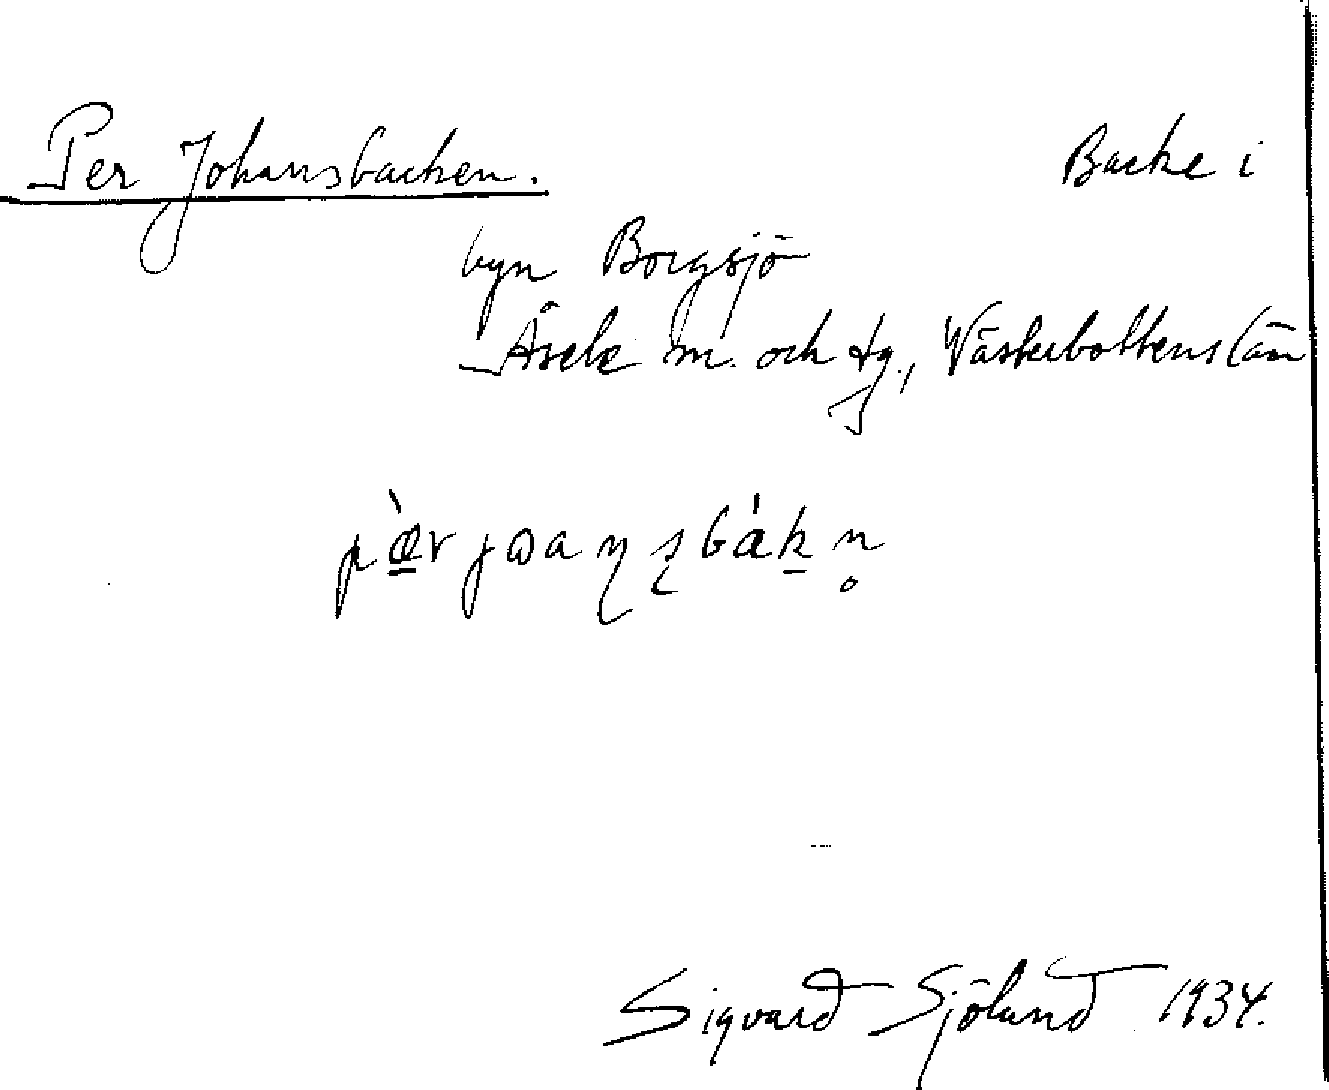 Per Johansbacken. Backe i
byn Borgsjö
Åsele sn. och tg., Västerbottens län
Sigvard Sjölund 1934.